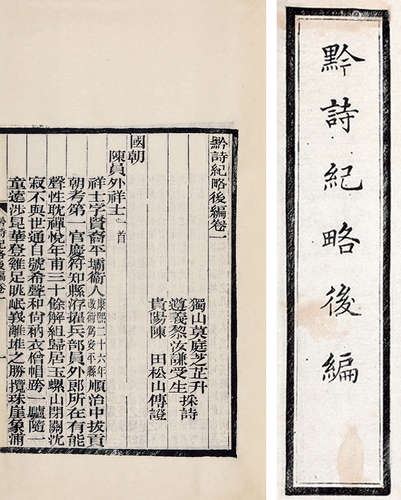 黔詩紀略後編
黔詩紀略後編卷一
獨山莫庭芝芷升採詩
遵義黎汝謙受生
貴陽陳　田松山傳證
國朝
陳員外祥士　首
祥士字賚裔平壩衛人康熙二十六年改衛爲安平縣順治中拔貢
朝考第　官慶符知縣洊擢兵部員外郎所在有能
聲性耽禪悅年甫三十餘解組歸居玉螺山閉關沈
寂不與世通自號希聲和尚衲衣僧帽跨一驢隨一
童遊涉昆華登雞足眺岷義離堆之勝攬珠崖象浦
黔詩紀略後編卷一